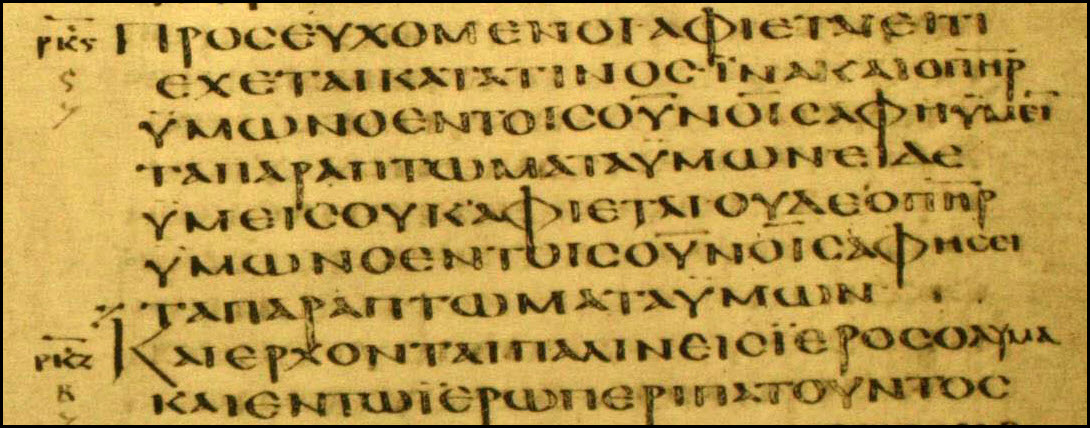 ρκϛ ΠΡΟϹΕΥΧΟΜΕΝΟΙΑΦΙΕΤΑΙΕΙΤΙ
ϛ ΕΧΕΤΑΙΚΑΤΑΤΙΝΟϹ·ΪΝΑΚΑΙΟΠ̅Η̅Ρ̅
ΫΜΩΝΟΕΝΤΟΙϹΟΥ̅ΝΟΙ̅ϹΑΦΗΫΜΕΙ̅
ΤΑΠΑΡΑΠΤΩΜΑΤΑΫΜΩΝΕΙΔΕ
ΫΜΕΙϹΟΥΚΑΦΙΕΤΑΙΟΥΔΕΟΠ̅Η̅Ρ̅
ΫΜΩΝΟΕΝΤΟΙϹΟΥ̅ΝΟΙ̅ϹΑΦΗϹΕΙ
⁒ ΤΑΠΑΡΑΠΤΩΜΑΤΑΫΜΩΝ
ρκζ ΚΑΙΕΡΧΟΝΤΑΙΠΑΛΙΝΕΙϹΪΕΡΟϹΟΛΥΜΑ
Β ΚΑΙΕΝΤΩΪΕΡΩΠΕΡΙΠΑΤΟΥΝΤΟϹ